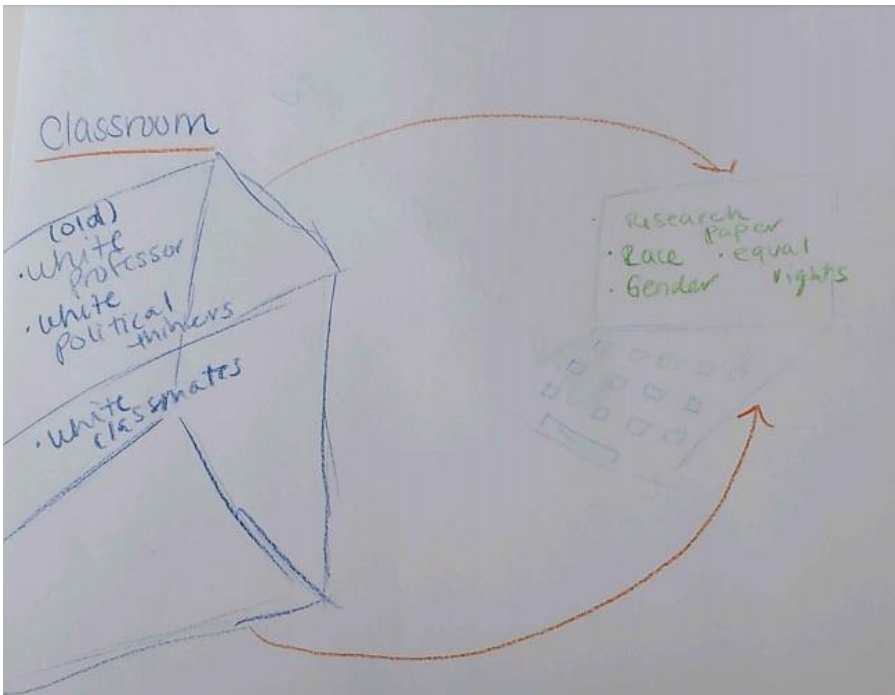 Classroom
(old)
· White
professor
· White
political
thinkers
· White
classmates
· Research
paper
· Race · equal
· Gender rights